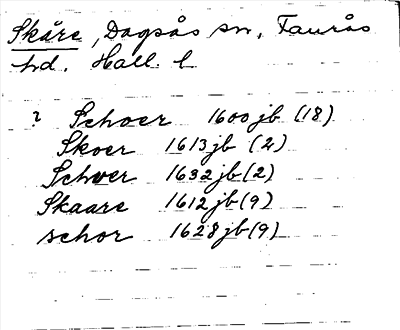 Skåre, Dagsås sn, Faurås
hd. Hall. l.
? Schoer 1600 jb (18)
Skoer 1613 jb (2)
Schoer 1632 jb (2)
Skaare 1612 jb (9)
schor 1628 jb (9)